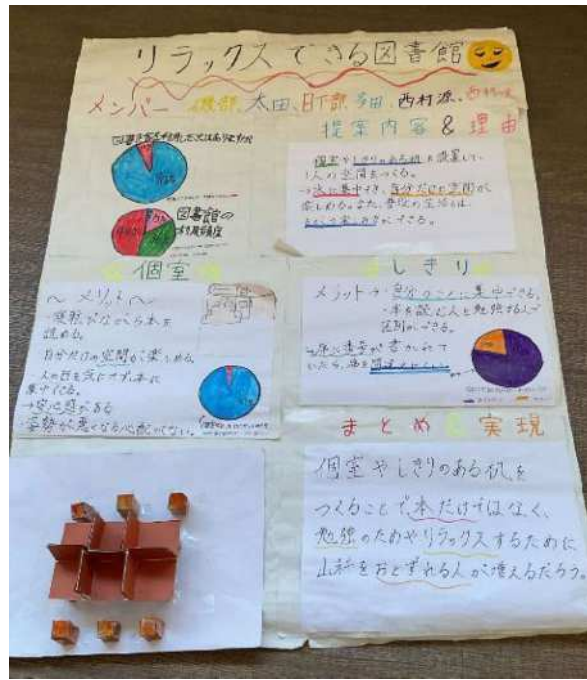 リラックスできる図書館
メンバー 磯部、太田、日下部、多田、西村源、西村
提案内容&理由
個室やしきりのある机を設置して、
1人の空間をつくる。
→本に集中でき、自分だけの空間が
楽しめる。また、普段の生活とは
図書館の
利用頻度
個室
〜メリット〜
・寝転びながら本を
読める。
・自分だけの空間が楽しめる。
人の目を気にせず、本に
集中できる。
→安心感がある
・姿勢が悪くなる心配がない。
しきり
メリット→・自分のことに集中できる。
・本を読む人と勉強する人で
区別ができる。
まとめ&実現
個室やしきりのある机を
つくることで本だけではなく、
勉強のためやリラックスするために
をおとずれる人が増えるだろう。